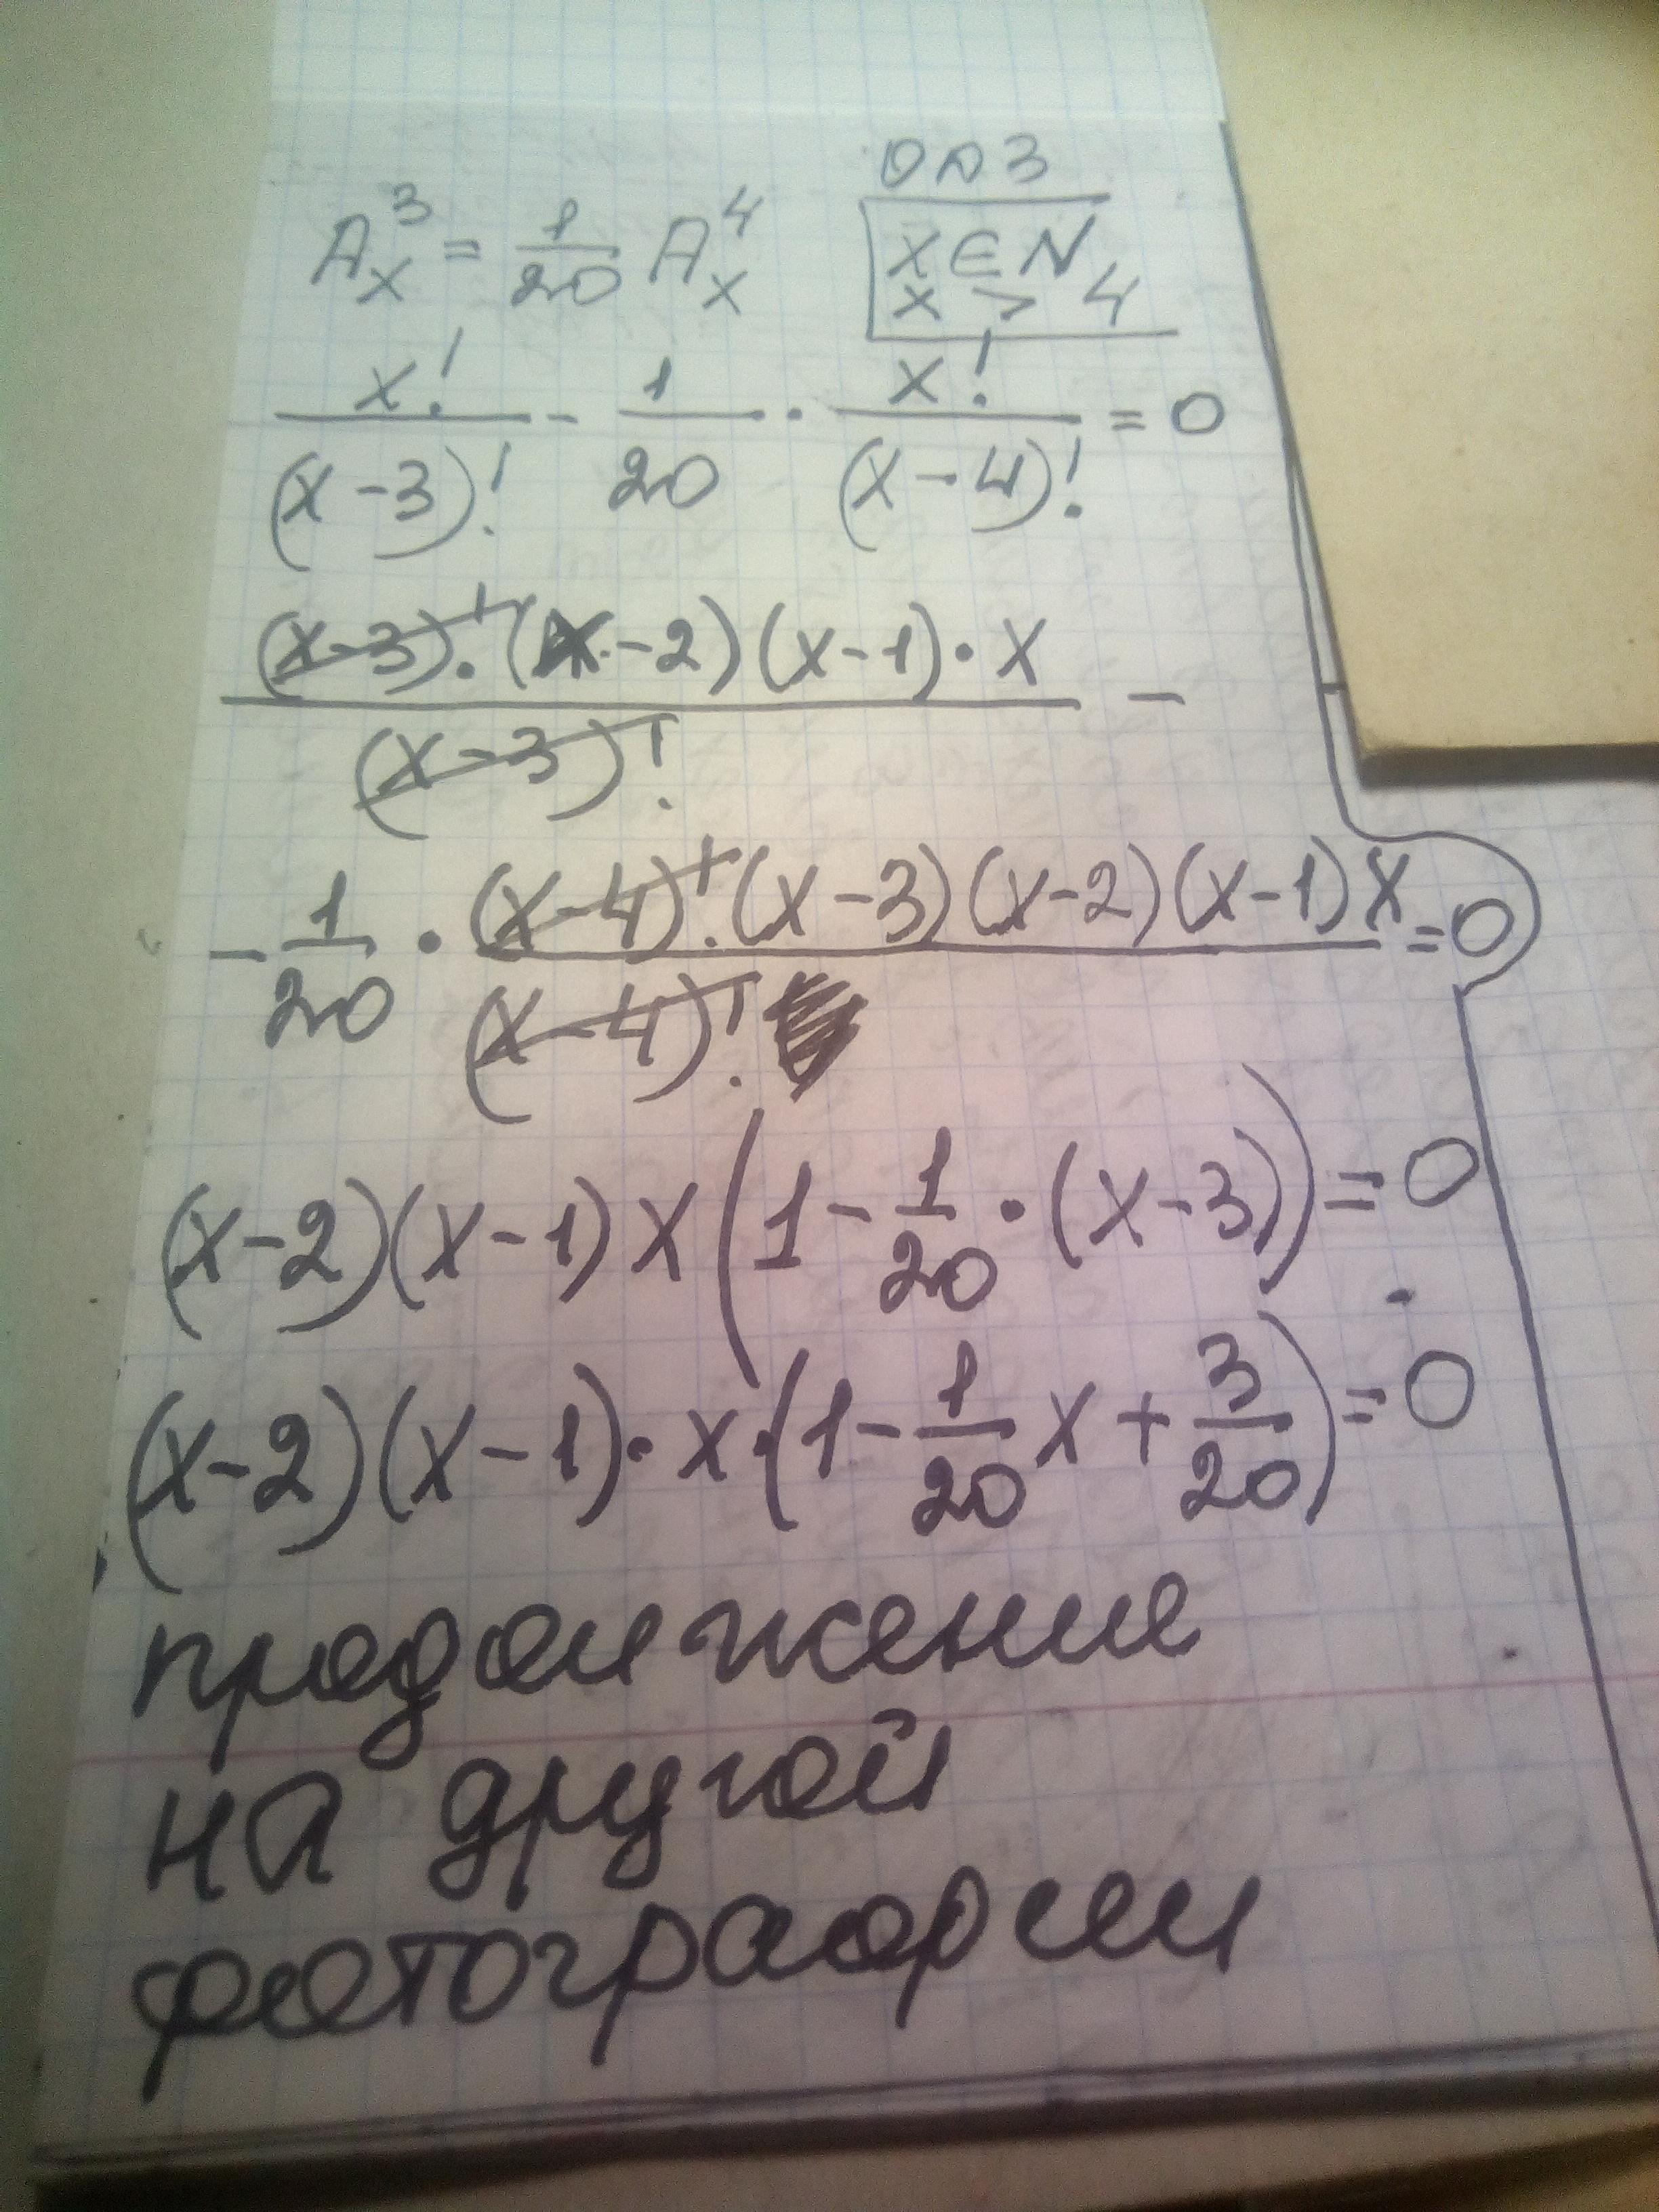 ОДЗ
A_x^3 = 1/20 A_x^4
x ∈ N
x > 4
x!/(x-3)! - 1/20 · x!/(x-4)! = 0
(x-3)! · (x-2)(x-1) · x / (x-3)! -
- 1/20 · (x-4)! (x-3)(x-2)(x-1)x / (x-4)! = 0
(x-2)(x-1)x(1 - 1/20 · (x-3)) = 0
(x-2)(x-1) · x · (1 - 1/20 x + 3/20) = 0
продолжение
на другой
фотографии